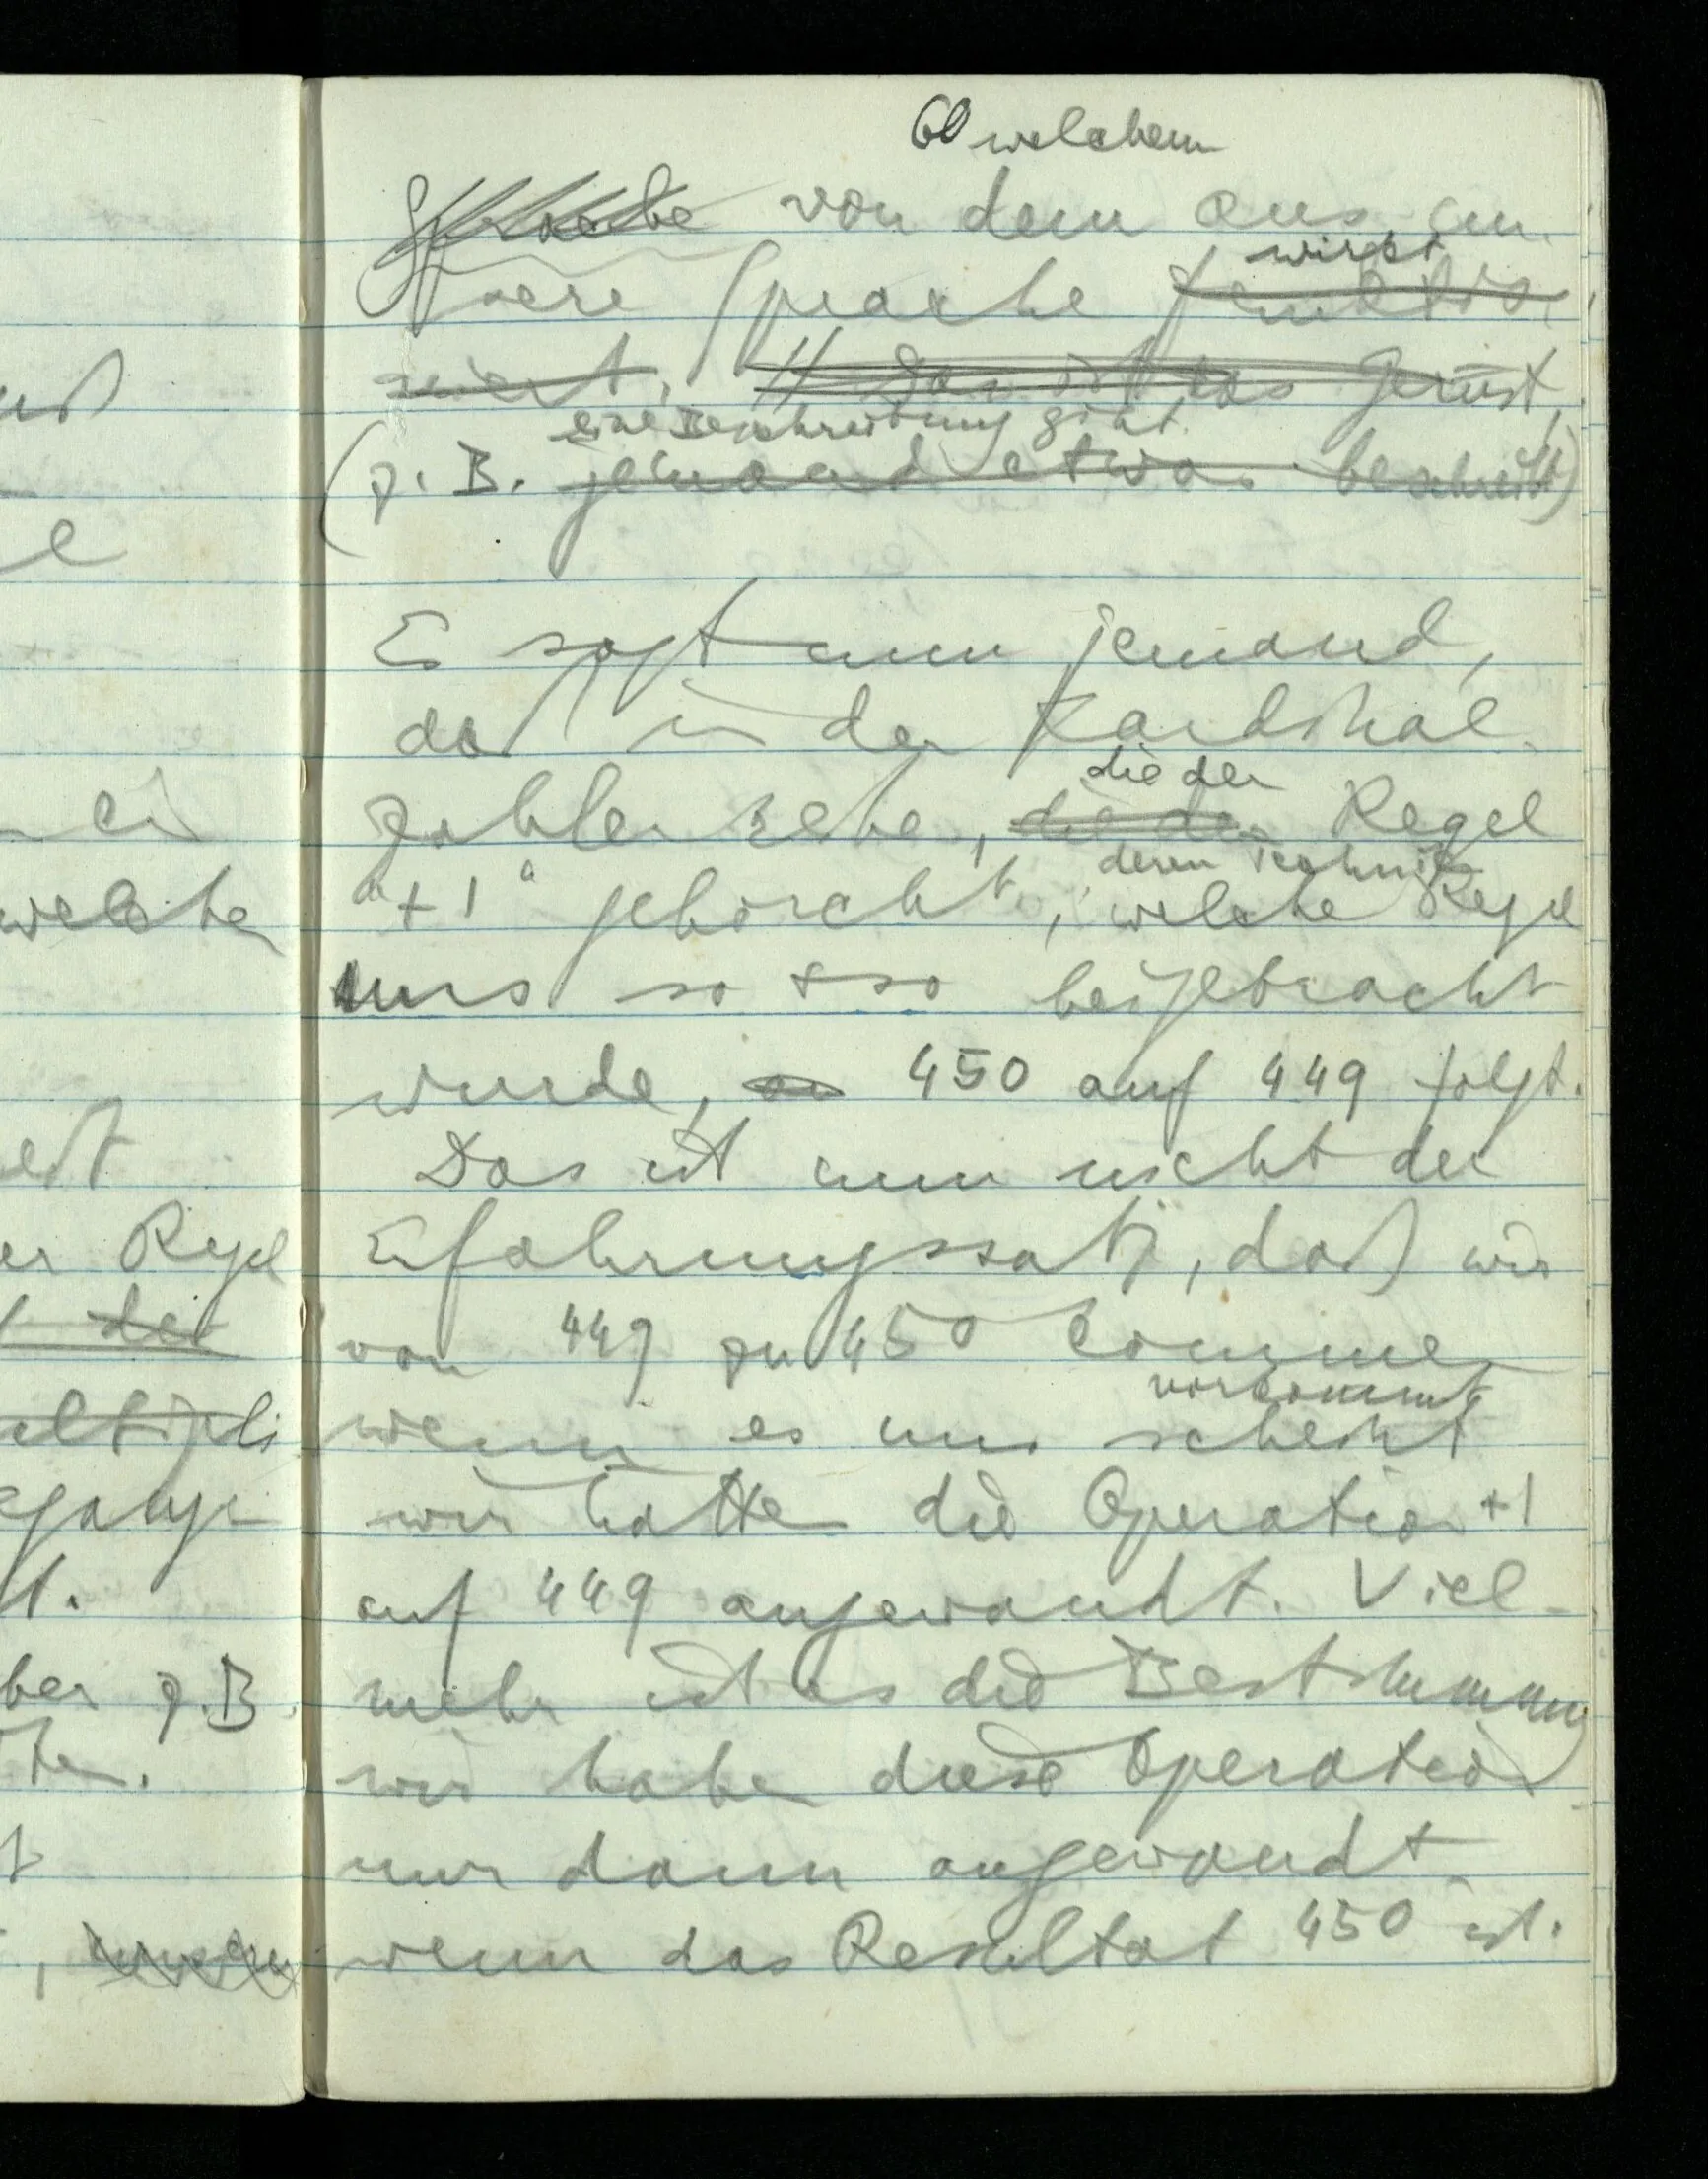 60 welchem
Sprache von dem aus un¬
wirkt
sere Sprache funktio¬
niert. // Das ist das Gerüst,
eine Beschreibung gibt
(z.B. jemand etwas beschreibt)
Es sagt nun jemand,
daß in der Kardinal¬
die der
zahlenreihe, die der Regel
deren Technik
"+1" gehorcht, welche Regel
uns so + so beigebracht
wurde, 450 auf 449 folgt.
Das ist nun nicht der
Erfahrungssatz, daß wir
von 449 zu 450 kommen
vorkommt
wenn es uns scheint
wir hätten die Operation +1
auf 449 angewandt. Viel-
mehr ist es die Bestimmung
wir haben diese Operation
nur dann angewandt
wenn das Resultat 450 ist.
uß
e
ei
welche
est
er Regel
der
ultipli
t.
ber z.B.